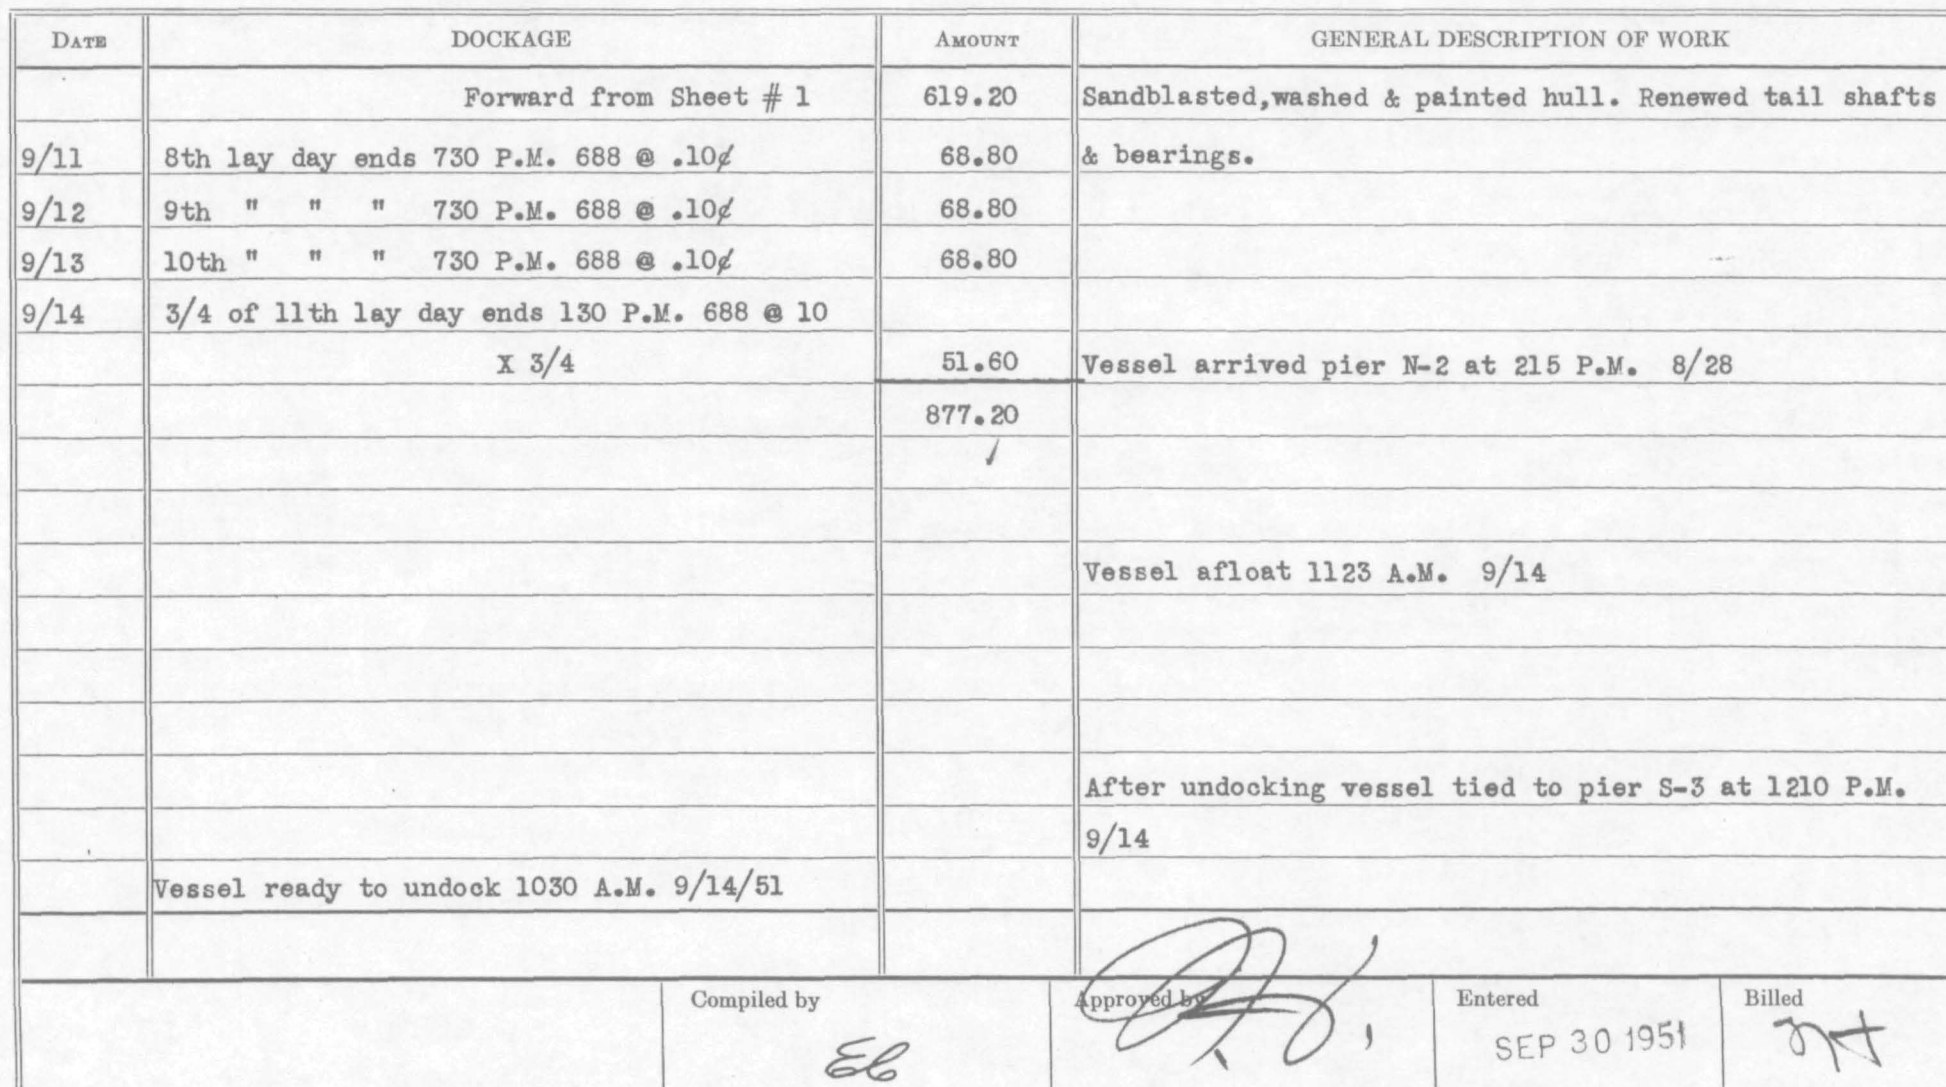 DATE DOCKAGE AMOUNT GENERAL DESCRIPTION OF WORK
Forward from Sheet # 1 619.20 Sandblasted,washed & painted hull. Renewed tail shafts
9/11 8th lay day ends 730 P.M. 688 @ .10¢ 68.80 & bearings.
9/12 9th " " " 730 P.M. 688 @ .10¢ 68.80
9/13 10th " " " 730 P.M. 688 @ .10¢ 68.80
9/14 3/4 of 11th lay day ends 130 P.M. 688 @ 10
X 3/4 51.60 Vessel arrived pier N-2 at 215 P.M. 8/28
877.20
Vessel afloat 1123 A.M. 9/14
After undocking vessel tied to pier S-3 at 1210 P.M.
9/14
Vessel ready to undock 1030 A.M. 9/14/51
Compiled by Approved by Entered Billed
SEP 30 1951